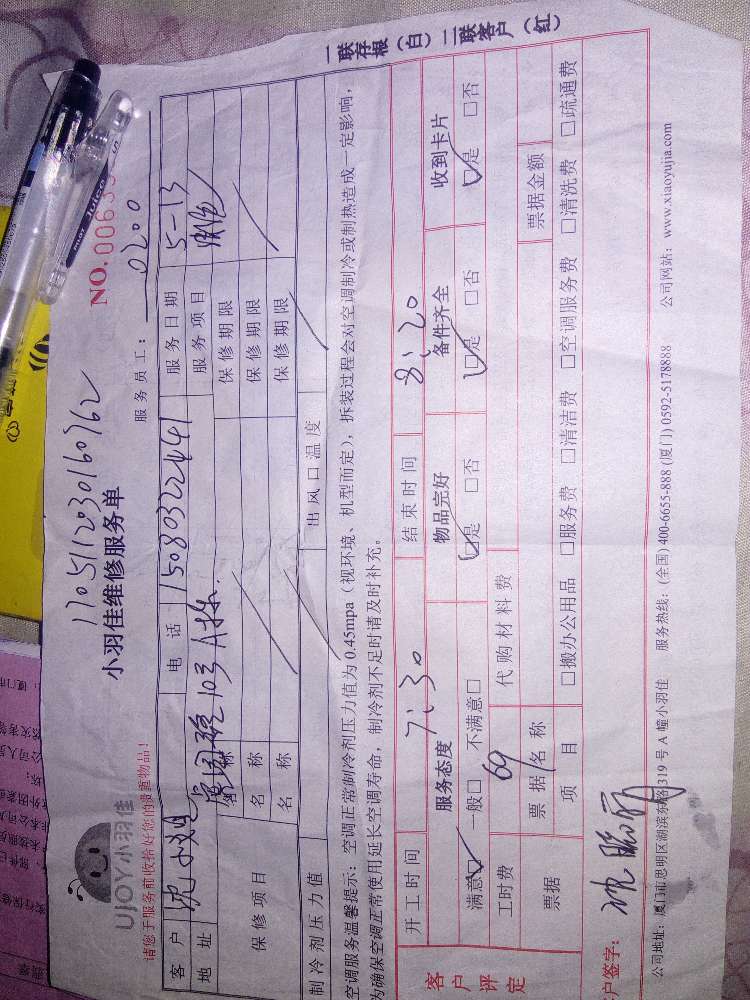 一联存根（白）二联客户（红）
UJOY小羽佳
请您于服务前收拾好您的贵重物品！
1705112030160762
小羽佳维修服务单
NO.0063
服务员工： 0200
客户 电话 15080322441 服务日期 5-13
地址 103 服务项目
保修项目 名称 保修期限
名称 保修期限
名称 保修期限
制冷剂压力值 出风口温度
空调服务温馨提示：空调正常制冷剂压力值为0.45mpa（视环境、机型而定），拆装过程会对空调制冷或制热造成一定影响，
为确保空调正常使用延长空调寿命，制冷剂不足时请及时补充。
开工时间 7:30 结束时间 8:20
客户评定 服务态度 物品完好 备件齐全 收到卡片
满意☑ 一般□ 不满意□ ☑是 □否 ☑是 □否 ☑是 □否
工时费 69 代购材料费
票据 票据名称 票据金额
项目 □搬办公用品 □服务费 □清洁费 □空调服务费 □清洗费 □疏通费
户签字：
公司地址：厦门市思明区湖滨东路319号A幢小羽佳 服务热线：(全国) 400-6655-888 (厦门) 0592-5178888 公司网站：www.xiaoyujia.com